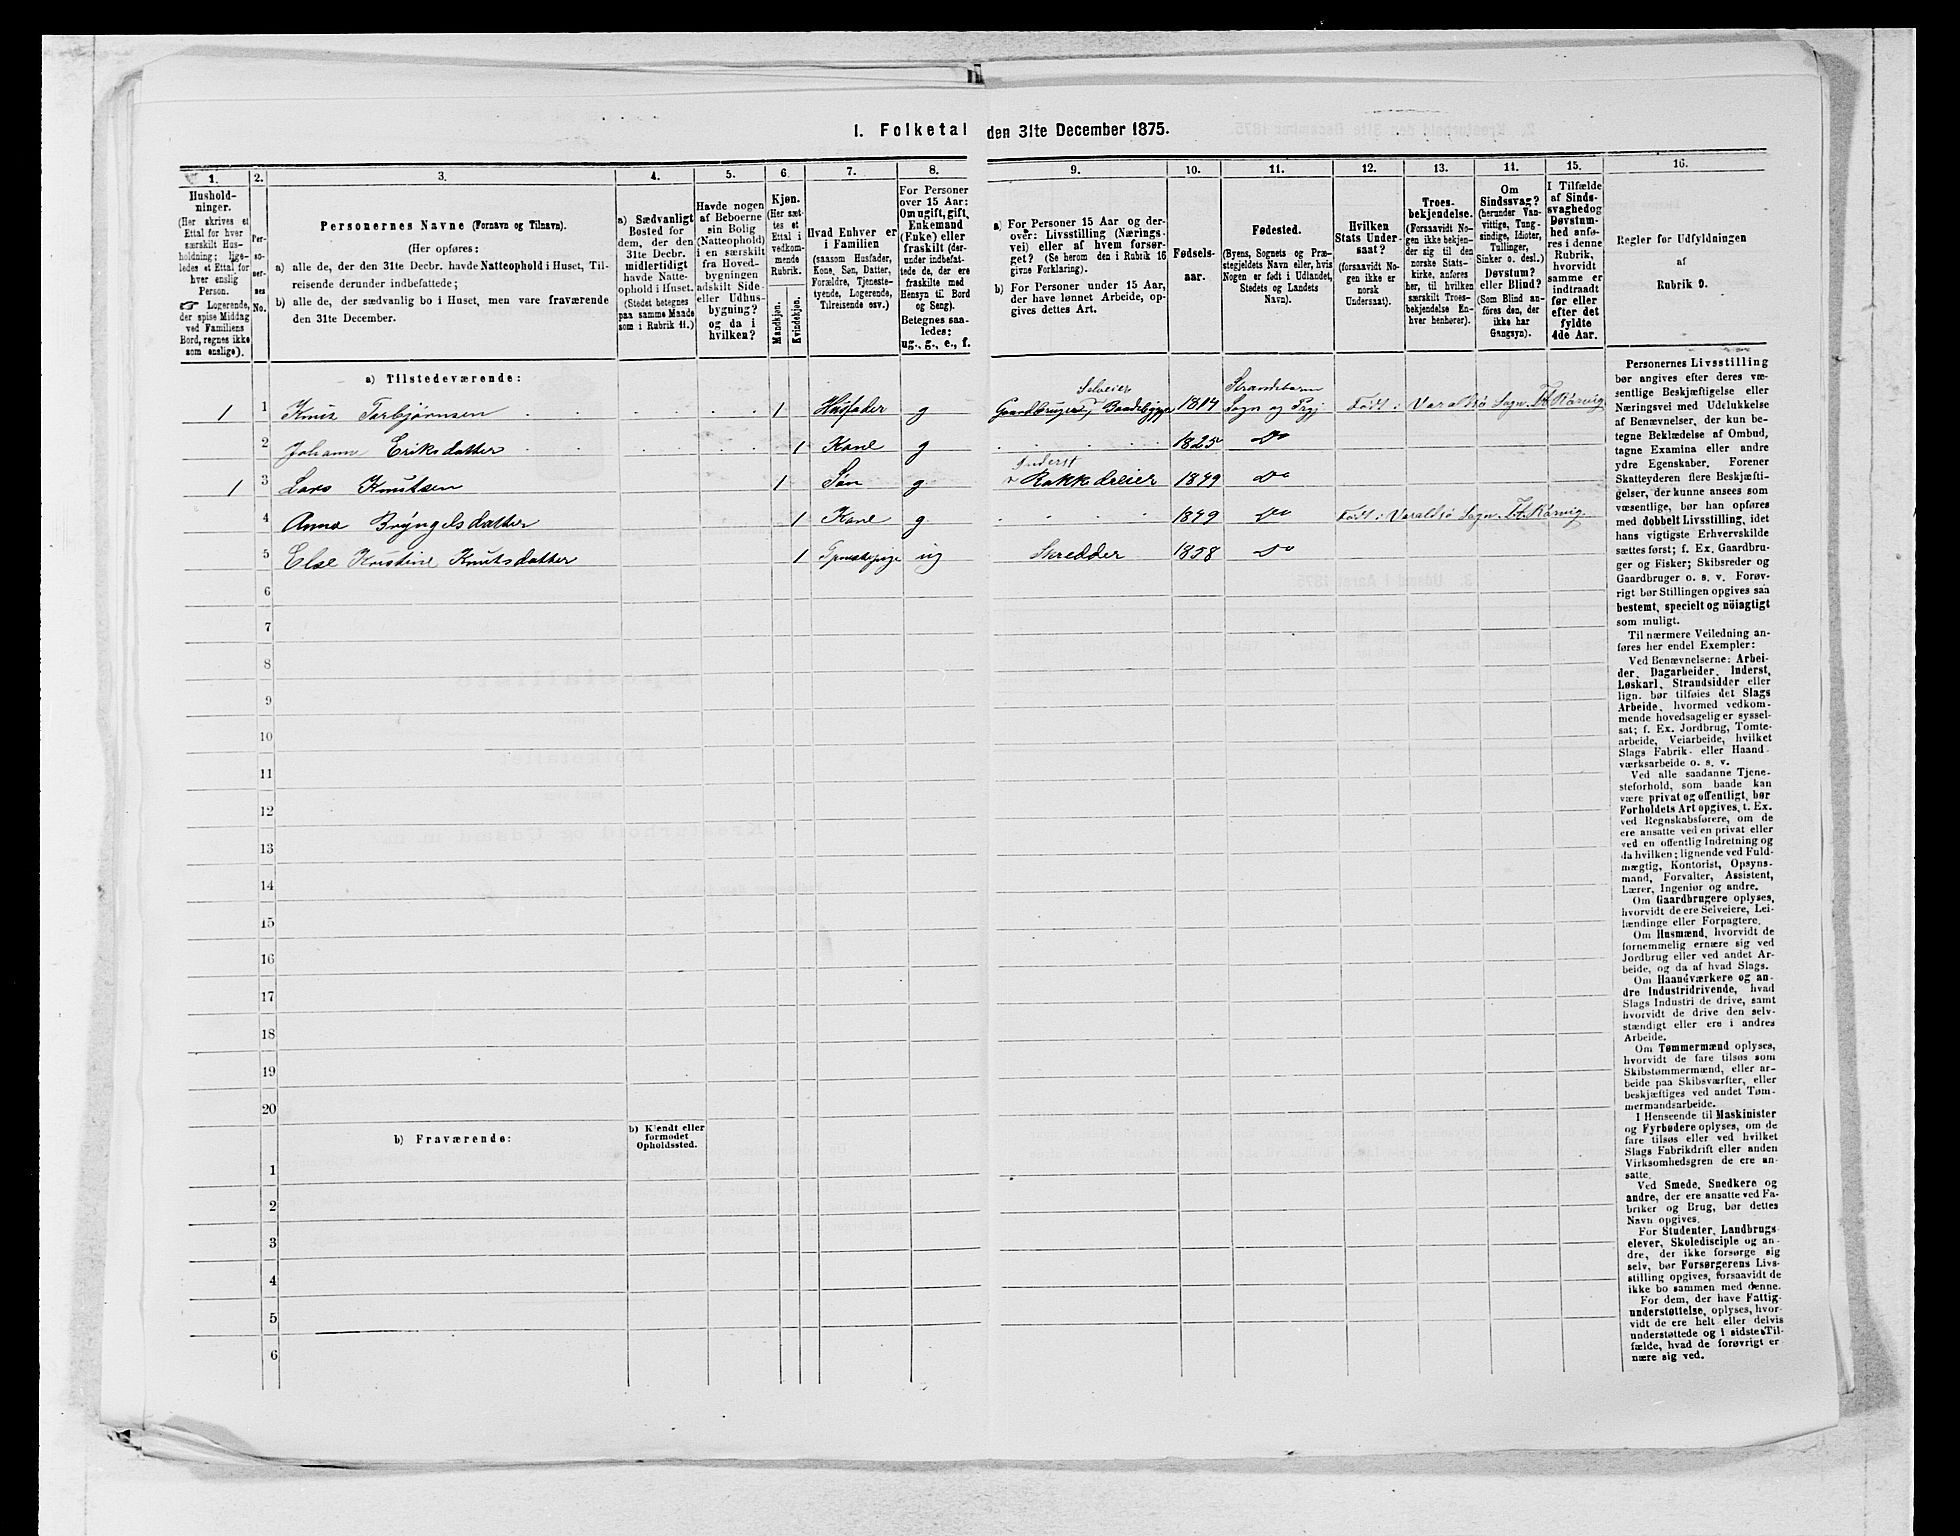 I. Folketal den 31te December 1875.
1.
2.
3.
4.
5.
6.
7.
8.
9.
10.
11.
12.
13.
14.
15.
16.
Hushold-
ninger.
(Her skrives et
Ettal for hver
særskilt Hus-
holdning; lige-
ledes et Ettal for
hver enslig
Person.
☞ Logerende,
der spise Middag
ved Familiens
Bord, regnes ikke
som enslige).
Per-
so-
ner-
nes
No.
Personernes Navne (Fornavn og Tilnavn).
(Her opføres:
a) alle de, der den 31te Decbr. havde Natteophold i Huset, Til-
reisende derunder indbefattede;
b) alle de, der sædvanlig bo i Huset, men vare fraværende
den 31te December.
a) Sædvanligt
Bosted for
dem, der den
31te Decbr.
midlertidigt
havde Natte-
ophold i Huset.
(Stedet betegnes
paa samme Maade
som i Rubrik 11.)
Havde nogen
af Beboerne
sin Bolig
(Natteophold)
i en særskilt
fra Hoved-
bygningen
adskilt Side-
eller Udhus-
bygning?
og da i
hvilken?
Kjøn.
(Her sæt-
tes et
Ettal i
vedkom-
mende
Rubrik.
Mandkjøn.
Kvindekjøn.
Hvad Enhver er
i Familien
(saasom Husfader,
Kone, Søn, Datter,
Forældre, Tjeneste-
tyende, Logerende,
Tilreisende osv.)
For Personer
over 15 Aar:
Om ugift, gift,
Enkemand
(Enke) eller
fraskilt (der-
under indbefat-
tede de, der ere
fraskilte med
Hensyn til Bord
og Seng).
Betegnes saa-
ledes:
ug., g., e., f.
a) For Personer 15 Aar og der-
over: Livsstilling (Nærings-
vei) eller af hvem forsør-
get? (Se herom den i Rubrik 16
givne Forklaring).
b) For Personer under 15 Aar,
der have lønnet Arbeide, op-
gives dettes Art.
Fødsels-
aar.
Fødested.
(Byens, Sognets og Præ-
stegjeldets Navn eller, hvis
Nogen er født i Udlandet,
Stedets og Landets
Navn).
Hvilken
Stats Under-
saat?
(forsaavidt No-
gen ikke er
norsk
Undersaat).
Troes-
bekjendelse.
(Forsaavidt No-
gen ikke bekjen-
der sig til den
norske Stats-
kirke, anføres
her, til hvilken
særskilt Troes-
bekjendelse En-
hver henhører).
Om
Sindssvag?
(herunder Van-
vittige, Tung-
sindige, Idioter,
Tullinger,
Sinker o. desl.)
Døvstum?
eller Blind?
(Som Blind an-
føres den, der
ikke har
Gangsyn).
I Tilfælde
af Sinds-
svaghed og
Døvstum-
hed anfø-
res i denne
Rubrik,
hvorvidt
samme er
indtraadt
før eller
efter det
fyldte
4de Aar.
Regler for Udfyldningen
af
Rubrik 9.
a) Tilstedeværende:
1 1 Knut Torbjørnsen 1 Husfader g Gaardbruger Selveier Baadebygger 1814 Strandebarm Sogn og Prgj Født i Varaldsø Sogn
2 Johanne Eriksdatter 1 Kone g 1825 Do
1 3 Lars Knutsen 1 Søn g Inderst Rokkedreier 1849 Do
4 Anna Brýngelsdatter 1 Kone g. 1849 Do Født i Varaldsø Sogn
5 Else Kristine Knutsdatter 1 ug Skredder 1858 Do
6
7
8
9
10
11
12
13
14
15
16
17
18
19
20
b) Fraværende:
b) Kjendt eller
formodet
Opholdssted.
1
2
3
4
5
6
Personernes Livsstilling
bør angives efter deres væ-
sentlige Beskjæftigelse eller
Næringsvei med Udelukkelse
af Benævnelser, der kun be-
tegne Beklædelse af Ombud,
tagne Examina eller andre
ydre Egenskaber. Forener
Skatteyderen flere Beskjæfti-
gelser, der kunne ansees som
væsentlige, bør han opføres
med dobbelt Livsstilling, idet
hans vigtigste Erhvervskilde
sættes først; f. Ex. Gaardbru-
ger og Fisker; Skibsreder og
Gaardbruger o. s. v. Forøv-
rigt bør Stillingen opgives saa
bestemt, specielt og nöiagtigt
som muligt.
Til nærmere Veiledning an-
føres her endel Exempler:
Ved Benævnelserne: Arbei-
der, Dagarbeider, Inderst,
Løskarl, Strandsidder eller
lign. bør tilføies det Slags
Arbeide, hvormed vedkom-
mende hovedsagelig er syssel-
sat; f. Ex. Jordbrug, Tomte-
arbeide, Veiarbeide, hvilket
Slags Fabrik- eller Haand-
værksarbeide o. s. v.
Ved alle saadanne Tjene-
steforhold, som baade kan
være privat og offentligt, bør
Forholdets Art opgives, t. Ex.
ved Regnskabsførere, om de
ere ansatte ved en privat eller
ved en offentlig Indretning og
da hvilken; lignende ved Fuld-
mægtig, Kontorist, Opsyns-
mand, Forvalter, Assistent,
Lærer, Ingeniør og andre.
Om Gaardbrugere oplyses,
hvorvidt de ere Selveiere, Lei-
lændinge eller Forpagtere.
Om Husmænd, hvorvidt de
fornemmelig ernære sig ved
Jordbrug eller ved andet Ar-
beide, og da af hvad Slags.
Om Haandværkere og an-
dre Industridrivende, hvad
Slags Industri de drive, samt
hvorvidt de drive den selv-
stændigt eller ere i andres
Arbeide.
Om Tømmermænd oplyses,
hvorvidt de fare tilsøs som
Skibstømmermænd, eller ar-
beide paa Skibsværfter, eller
beskjæftiges ved andet Tøm-
mermandsarbeide.
I Henseende til Maskinister
og Fyrbødere oplyses, om de
fare tilsøs eller ved hvilket
Slags Fabrikdrift eller anden
Virksomhedsgren de ere an-
satte.
Ved Smede, Snedkere og
andre, der ere ansatte ved Fa-
briker og Brug, bør dettes
Navn opgives.
For Studenter, Landbrugs-
elever, Skoledisciple og an-
dre, der ikke forsørge sig
selv, bør Forsørgerens Livs-
stilling opgives, forsaavidt de
ikke bo sammen med denne.
For dem, der have Fattig-
understøttelse, oplyses, hvor-
vidt de ere helt eller delvis
understøttede og i sidste Til-
fælde, hvad de forøvrigt er-
nære sig ved.